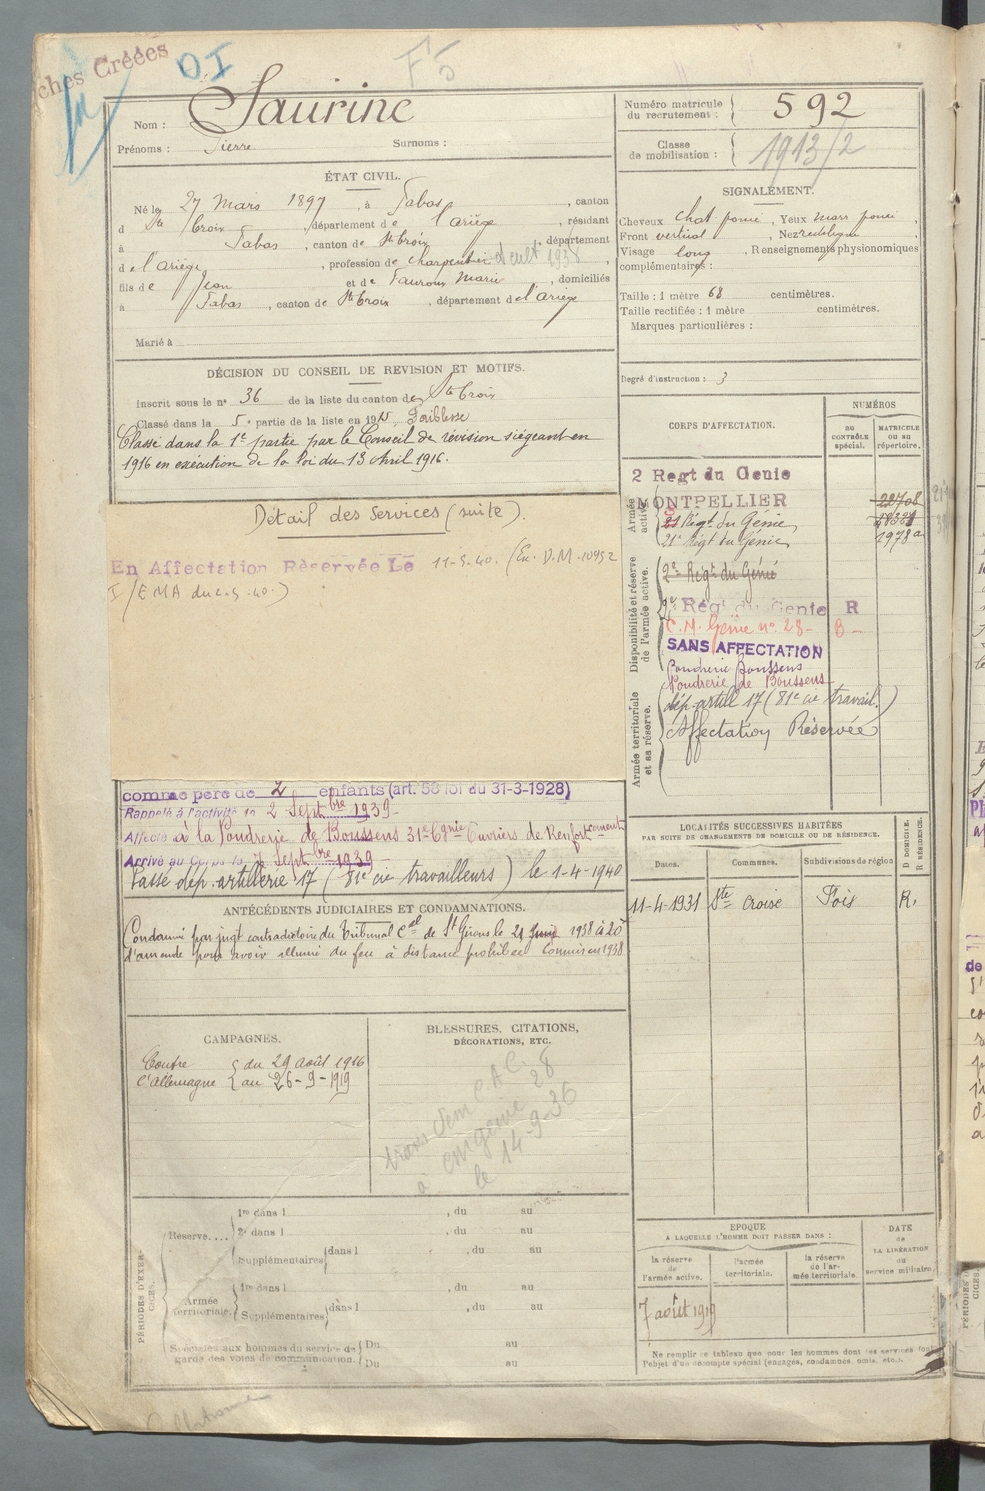 ches Créées
DI
F5
Nom : Saurine
Prénoms : Pierre Surnoms :
Numéro matricule du recrutement : 592
Classe de mobilisation : 1913/2
ÉTAT CIVIL.
Né le 27 Mars 1897, à Fabas, canton
d Ste Croix, département de l'Ariège, résidant
à Fabas, canton de Ste Croix, département
de l'Ariège, profession de charpentier et cult 1938,
fils de Jean et de Fauroux Marie, domiciliés
à Fabas, canton de Ste Croix, département de l'Ariège
Marié à
SIGNALEMENT.
Cheveux chat. foncé, Yeux marr foncé,
Front vertical, Nez rectiligne,
Visage long, Renseignements physionomiques
complémentaires :
Taille : 1 mètre 68 centimètres.
Taille rectifiée : 1 mètre centimètres.
Marques particulières :
Degré d'instruction : 3
DÉCISION DU CONSEIL DE REVISION ET MOTIFS.
Inscrit sous le n° 36 de la liste du canton de Ste Croix
Classé dans la 5e partie de la liste en 1915, Faiblesse
Classé dans la 1e partie par le Conseil de révision siégeant en
1916 en exécution de la Loi du 13 Avril 1916.
Détail des Services (suite).
En Affectation Réservée Le 11-5-40. (Ex. D.M. 10952
I/EMA du 2.5.40.)
comme père de 2 enfants (art. 58 loi du 31-3-1928)
Rappelé à l'activité le 2 Septbre 1939
Affecté à la Poudrerie de Boussens 31e Cgnie Ouvriers de Renforcement
Arrivé au Corps le Septbre 1939
Passé dép. artillerie 17 (81e cie travailleurs) le 1-4-1940
CORPS D'AFFECTATION.
NUMÉROS
AU CONTRÔLE spécial.
MATRICULE OU AU répertoire.
Armée active.
2 Regt du Genie
MONTPELLIER 22708
21 Régt du Génie
21e Régt du Génie 1978a
Disponibilité et réserve de l'armée active.
2e Régt du Génie
2e Régt du Genie R
C.M. Génie n° 28 - B -
SANS AFFECTATION
Poudrerie Boussens
Poudrerie de Boussens
Armée territoriale et sa réserve.
dép. artill 17 (81e cie travail.)
Affectation Réservée
ANTÉCÉDENTS JUDICIAIRES ET CONDAMNATIONS.
Condamné par jugt contradictoire du Tribunal Cel de St Girons le 21 Juin 1938 à 20f
d'amende pour avoir allumé du feu à distance prohibée Commis en 1938
LOCALITÉS SUCCESSIVES HABITÉES
PAR SUITE DE CHANGEMENTS DE DOMICILE OU DE RÉSIDENCE.
Dates. Communes. Subdivisions de région D DOMICILE. R RÉSIDENCE.
11-4-1931 Ste Croise Foix R.
CAMPAGNES.
Contre l'Allemagne { du 29 août 1916
au 26-9-1919
BLESSURES, CITATIONS,
DÉCORATIONS, ETC.
C A C 28
à cm génie
le 14-9-36
PÉRIODES D'EXERCICES.
Réserve.... 1re dans l , du au
2e dans l , du au
Supplémentaires dans l , du au
Armée territoriale. 1re dans l , du au
Supplémentaires dans l , du au
Spéciales aux hommes du service de garde des voies de communication. Du au
Du au
EPOQUE
A LAQUELLE L'HOMME DOIT PASSER DANS :
la réserve de l'armée active.
l'armée territoriale.
la réserve de l'armée territoriale.
DATE de LA LIBÉRATION du service militaire.
7 août 1919
Ne remplir ce tableau que pour les hommes dont les services font
l'objet d'un décompte spécial (engagés, condamnés, omis, etc.).